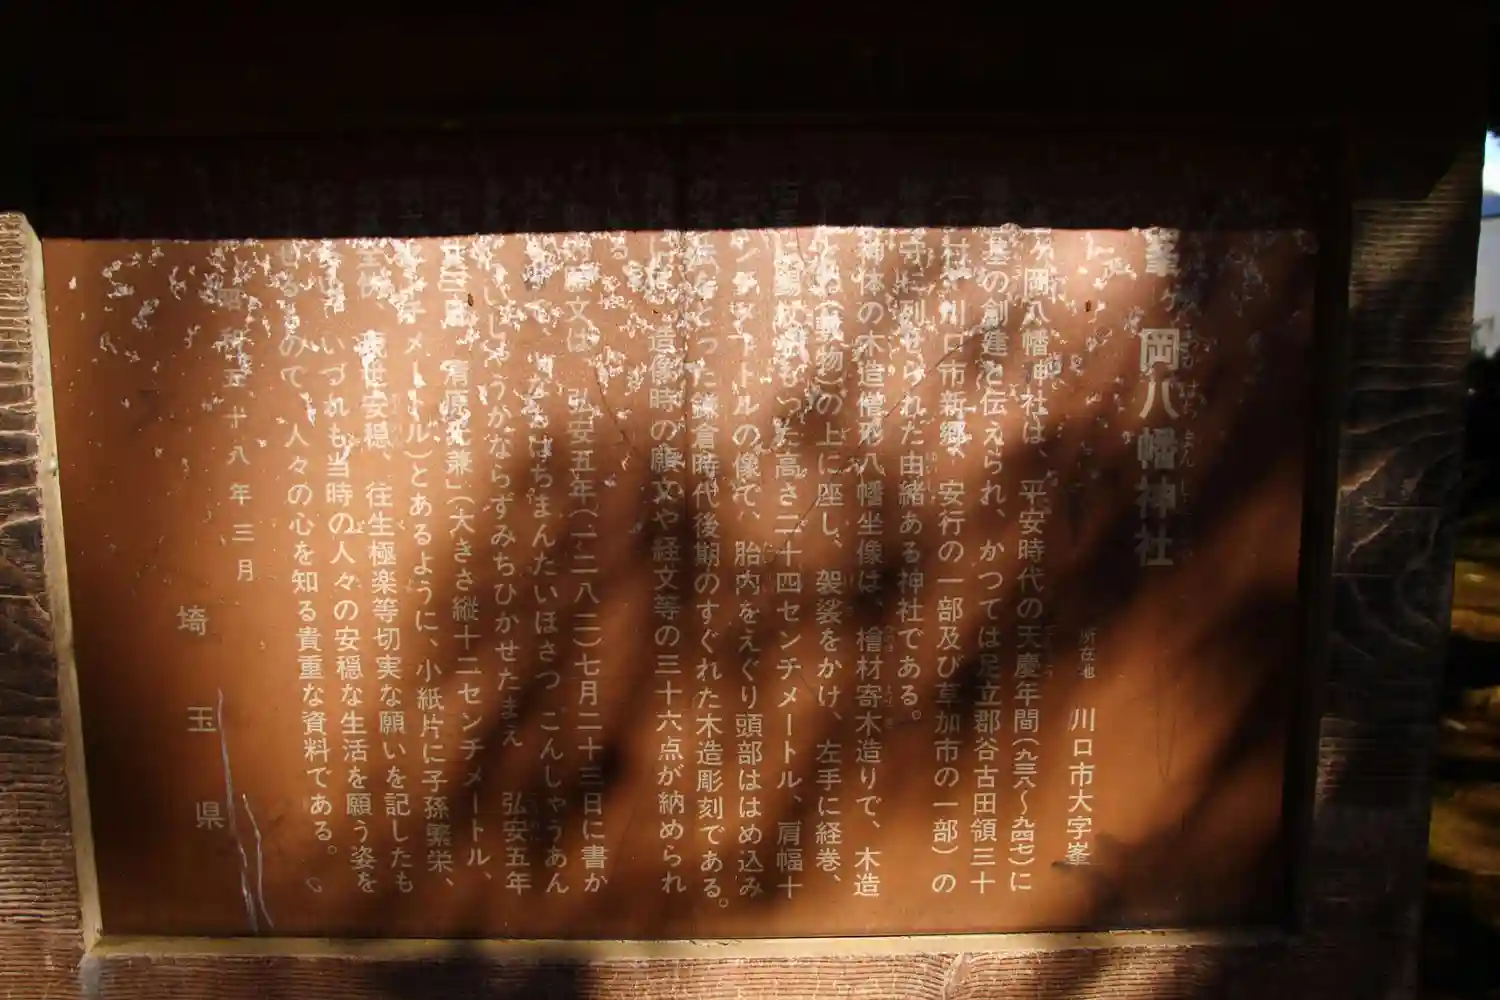 峯ヶ岡八幡神社
所在地 川口市大字峯
ヶ岡八幡神社は、平安時代の天慶年間(九三八〜九四七)に
基の創建と伝えられ、かつては足立郡谷古田領三十
村 川口市新郷、安行の一部及び草加市の一部)の
守に列せられた由緒ある神社である。
神体の木造僧形八幡坐像は、檜材寄木造りで、木造
(敷物)の上に座し、袈裟をかけ、左手に経巻、
錫杖をもった高さ二十四センチメートル、肩幅十
センチメートルの像で、胎内をえぐり頭部ははめ込み
法をとった鎌倉時代後期のすぐれた木造彫刻である。
には、造像時の願文や経文等の三十六点が納められ
る
願文は、弘安五年(一二八二)七月二十三日に書か
て、なむはちまんたいほさつ こんしやうあん
しやうかならずみちひかせたまえ 弘安五年
廿三日 源兼」(大きさ縦十二センチメートル、
チメートル)とあるように、小紙片に子孫繁栄、
現世安穏、往生極楽等切実な願いを記したも
、いづれも当時の人々の安穏な生活を願う姿を
せるもので、人々の心を知る貴重な資料である。
昭和五十八年三月
埼玉県